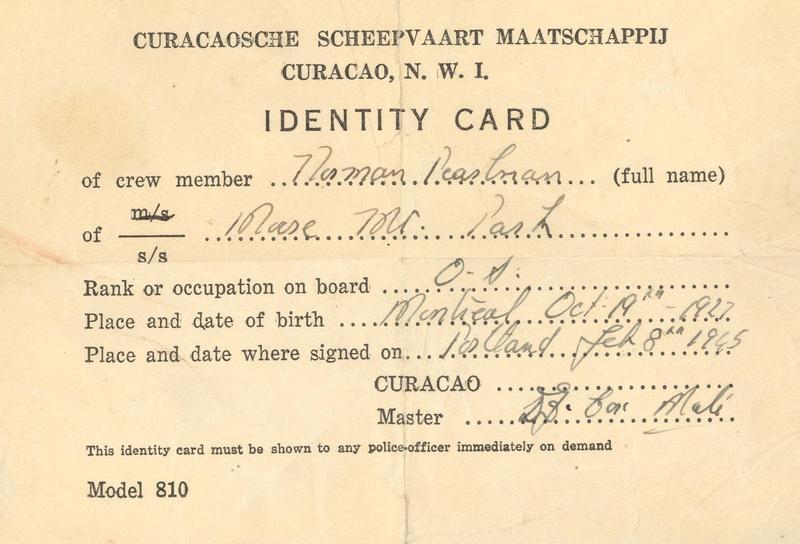 CURACAOSCHE SCHEEPVAART MAATSCHAPPIJ
CURACAO, N. W. I.
IDENTITY CARD
of crew member Norman Pearlman (full name)
of m/s
s/s
Rank or occupation on board O. S.
Place and date of birth Montreal Oct. 19th - 1927
Place and date where signed on Portland Feb 8th 1945
CURACAO
Master
This identity card must be shown to any police-officer immediately on demand
Model 810